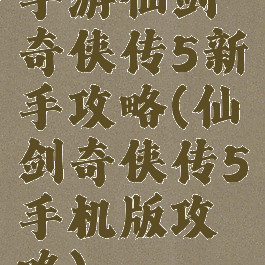 手游仙剑
奇侠传5新
手攻略(仙
剑奇侠传5
手机版攻
略)